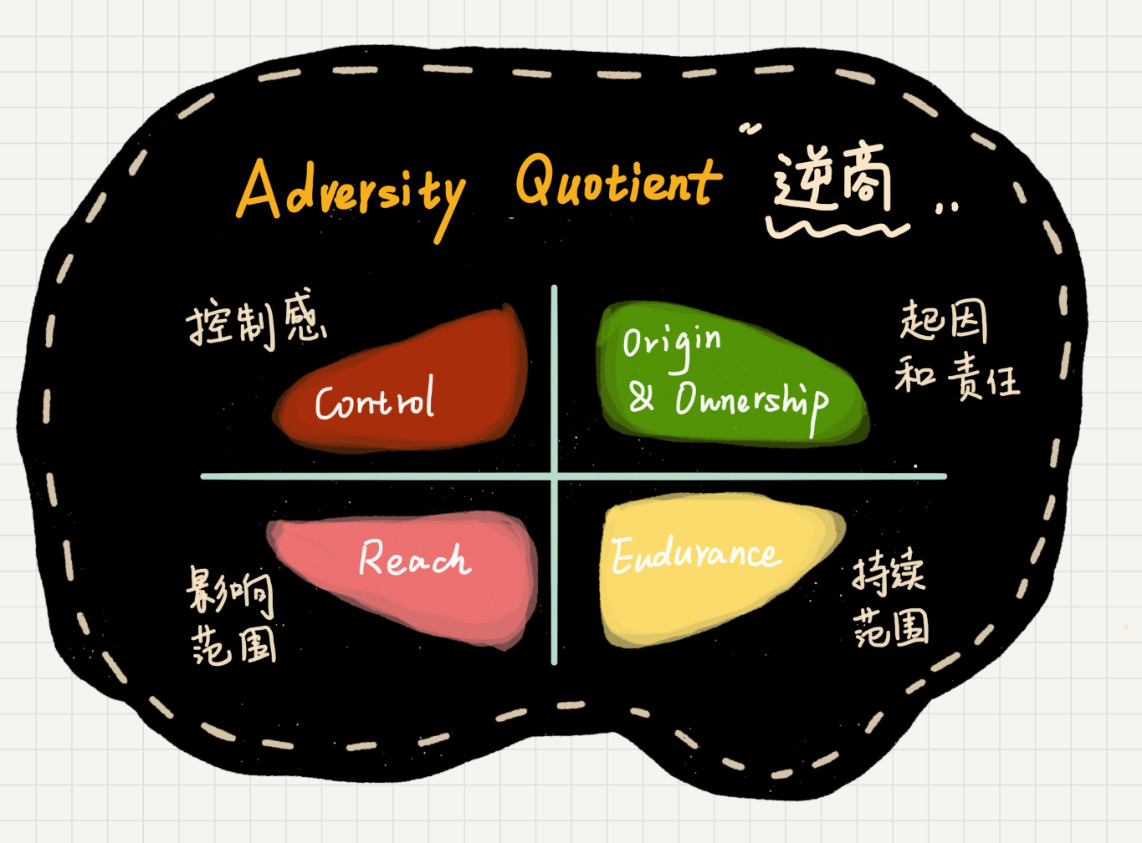 Adversity Quotient “逆商”
控制感
Control
Origin
& Ownership
起因
和责任
影响
范围
Reach
Endurance
持续
范围